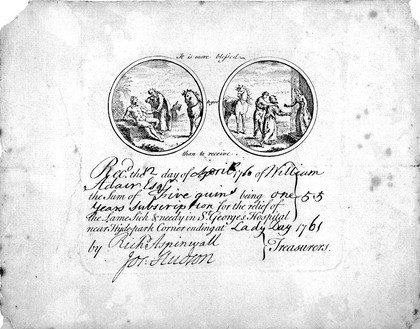 It is more blessed
than to receive
Recd. the 2 day of April 1760 of William
Adair Esqr.
the Sum of Five guins being one 5 5
Years Subscription for the relief of
the Lame Sick & needy in St. Georges Hospital
near Hyde park Corner ending at Lady Day 1761
by Richd. Aspinwall
Jos. Hudson
Treasurers.